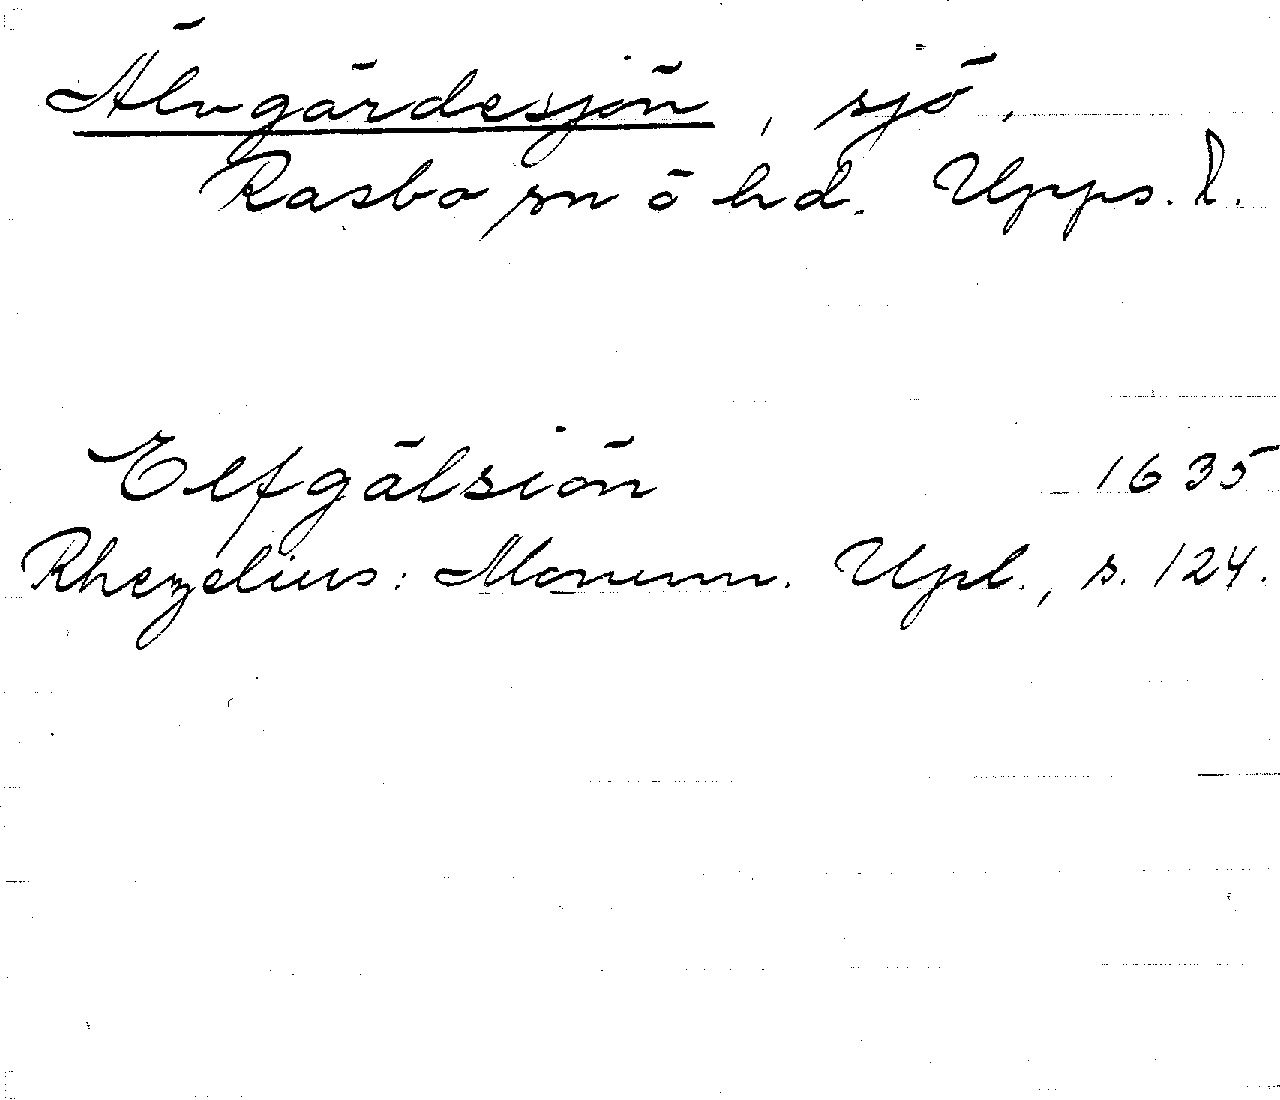 Älvgärdesjön, sjö.
Rasbo sn o hd. Upps. l.
Elfgälsiön 1635
Rhezelius: Monum. Upl., s. 124.